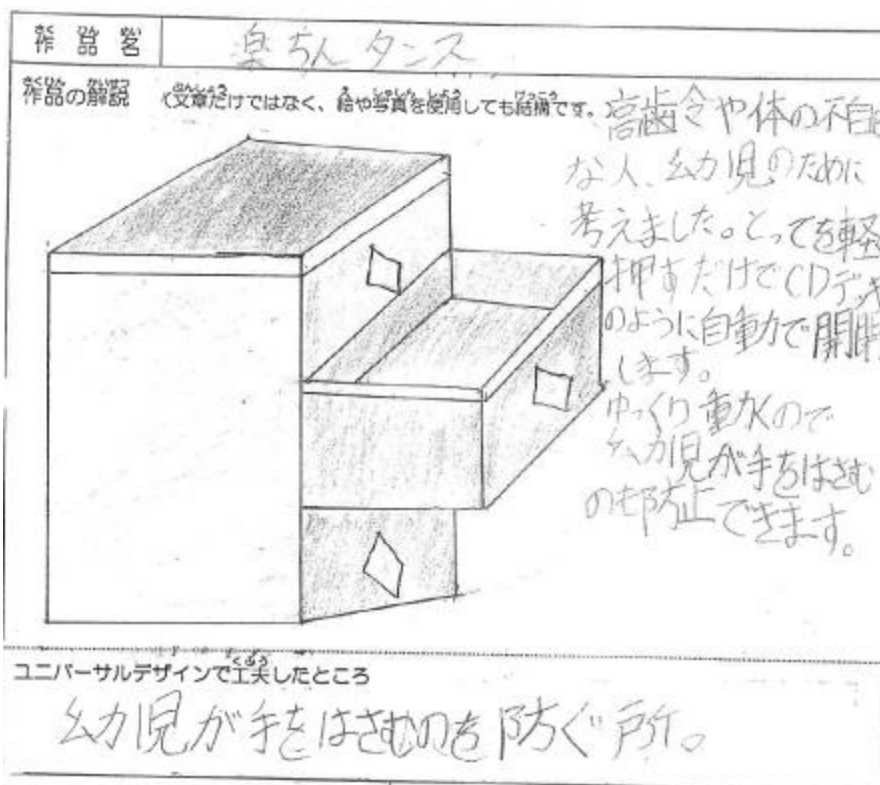 作品名
楽ちんタンス
作品の解説 (文章だけではなく、絵や写真を使用しても結構です。
高齢令や体の不自
な人、幼児のために
考えました。とってを軽
押すだけでCDデッキ
のように自動で開
します。
ゆっくり動くので
幼児が手をはさむ
のも防止できます。
ユニバーサルデザインで工夫したところ
幼児が手をはさむのを防ぐ所。